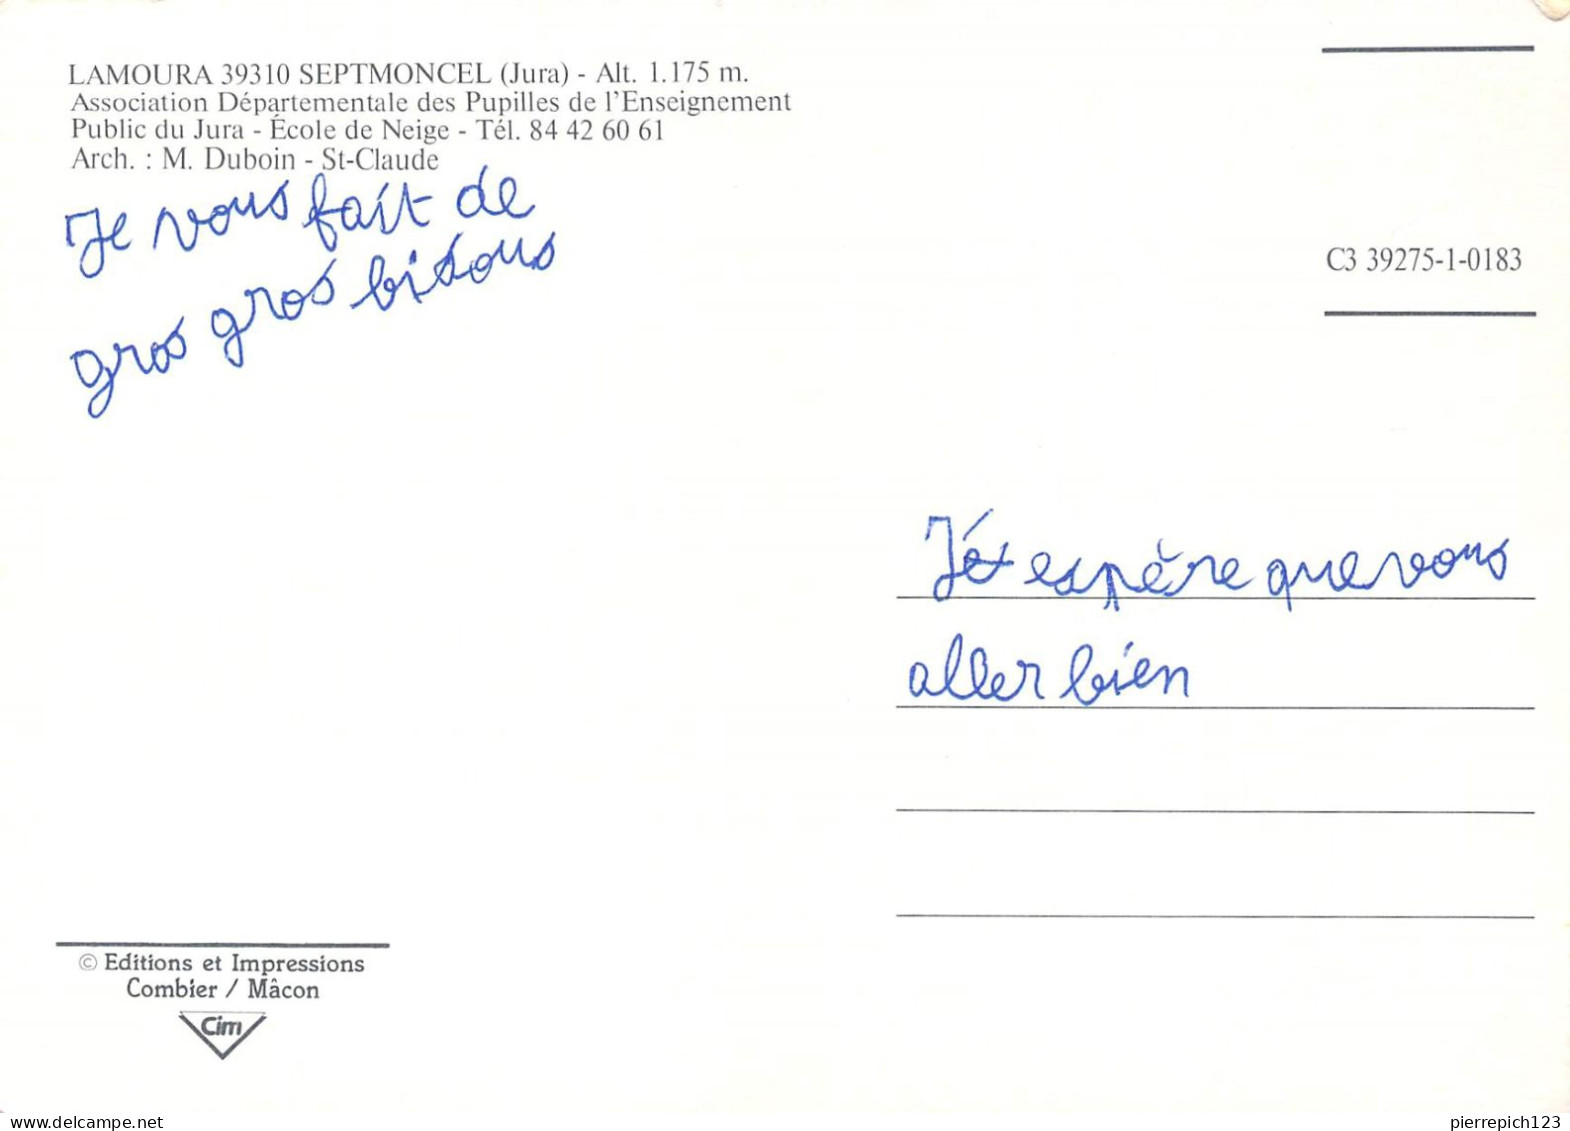 LAMOURA 39310 SEPTMONCEL (Jura) - Alt. 1.175 m.
Association Départementale des Pupilles de l'Enseignement
Public du Jura - École de Neige - Tél. 84 42 60 61
Arch. : M. Duboin - St-Claude
Je vous fait de
gros gros bisous
C3 39275-1-0183
J'é espère que vous
aller bien
© Editions et Impressions
Combier / Mâcon
Cim
www.delcampe.net
pierrepich123